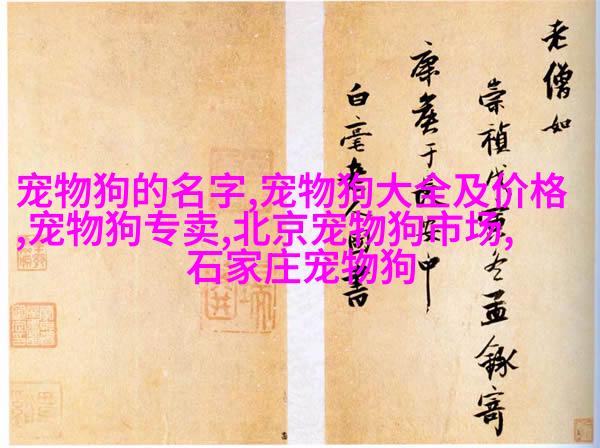 宠物狗的名字,宠物狗大全及价格
,宠物狗专卖,北京宠物狗市场,
石家庄宠物狗
老僧如
崇禎戊寅冬孟録寄
康侯于長安中
白毫書